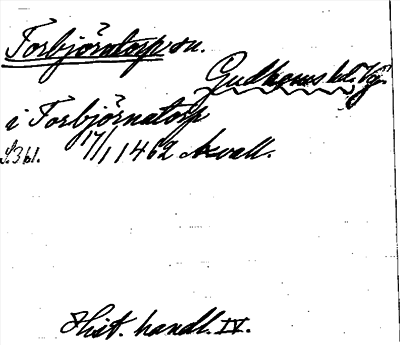 Torbjörntorp sn.
Gudhems hd. Vg.
i Torbjörnatorp
S. 3 bl. 17/1 1462 Avall.
Hist. handl. IV.